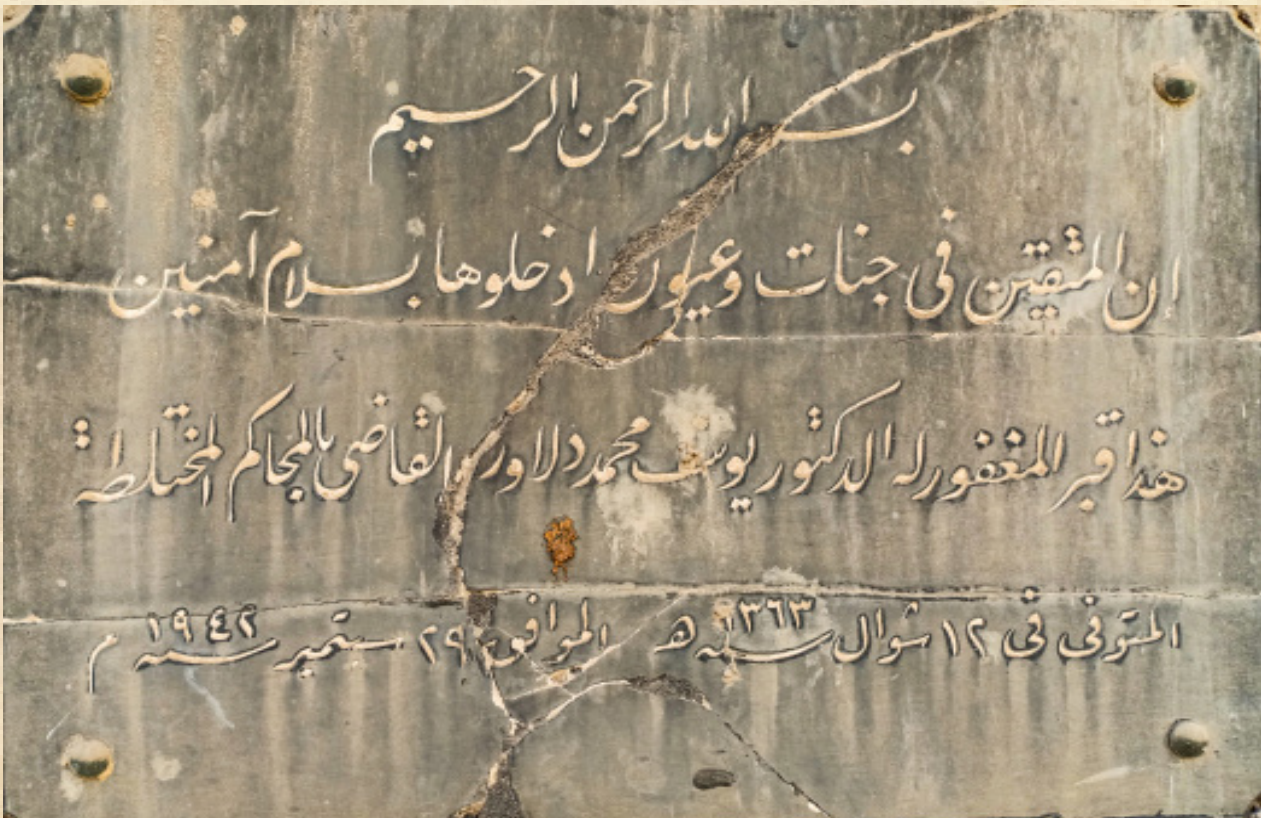 بسم الله الرحمن الرحيم
إن المتقين في جنات وعيون ادخلوها بسلام آمنين
هذا قبر المغفور له الدكتور يوسف محمد دلاور القاضى بالمحاكم المختلطة
المتوفى فى ١٢ شوال سنه ١٣٦٣ هـ الموافق ٢٩ سبتمبر سنه ١٩٤٢ م